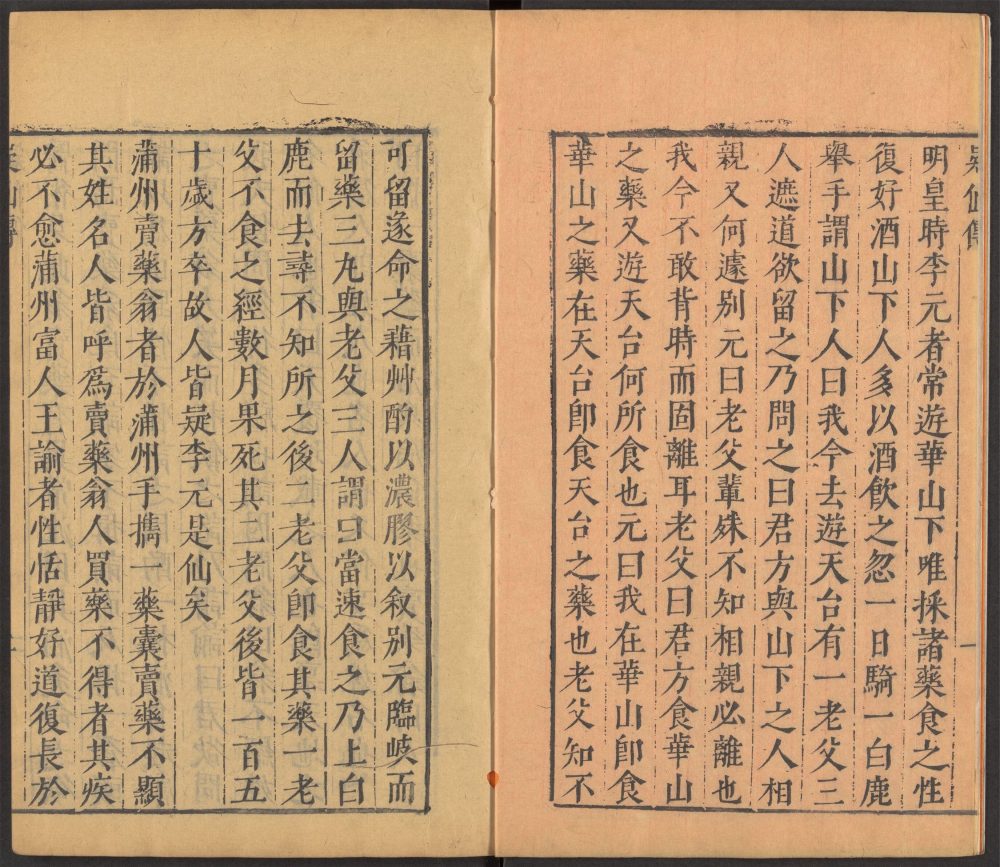 疑仙傳
一
明皇時李元者常遊華山下唯採諸藥食之性
復好酒山下人多以酒飲之忽一日騎一白鹿
舉手謂山下人曰我今去遊天台有一老父三
人遮道欲留之乃問之曰君方與山下之人相
親又何遽别元曰老父輩殊不知相親必離也
我今不敢背時而固離耳老父曰君方食華山
之藥又遊天台何所食也元曰我在華山卽食
華山之藥在天台卽食天台之藥也老父知不
可留遂命之藉艸酌以濃膠以叙别元臨岐而
留藥三丸與老父三人謂曰當速食之乃上白
鹿而去尋不知所之後二老父卽食其藥一老
父不食之經數月果死其二老父後皆一百五
十歲方卒故人皆疑李元是仙矣
蒲州賣藥翁者於蒲州手攜一藥囊賣藥不顯
其姓名人皆呼爲賣藥翁人買藥不得者其疾
必不愈蒲州富人王諭者性恬靜好道復長於